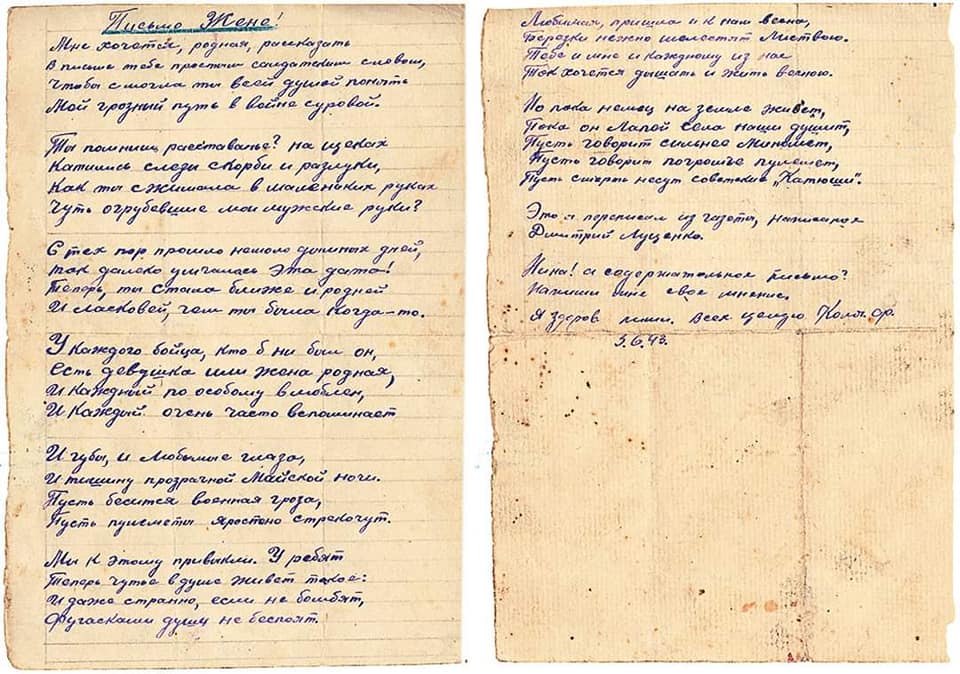 Письмо Жене!
Мне хочется, родная, рассказать
В письме тебе простым солдатским словом,
Чтобы смогла ты всей душой понять
Мой грозный путь в войне суровой.
Ты помнишь расставанье? на щеках
Катились следы скорби и разлуки,
Как ты сжимала в маленьких руках
Чуть огрубевшие мои мужские руки?
С тех пор прошло немало дымных дней,
так далеко умчалась эта дата!
Теперь, ты стала ближе и родней
И ласковей, чем ты была когда-то.
У каждого бойца, кто б ни был он,
Есть девушка или жена родная,
И каждный по особому влюблен,
И каждый очень часто вспоминает
И губы, и любимые глаза,
И тишину прозрачной Майской ночи.
Пусть бесится военная гроза,
Пусть пулеметы яростно стрекочут.
Мы к этому привыкли. У ребят
Теперь чутье в душе живет такое:
И даже странно, если не бомбят,
Фугасками душу не беспоят.
Любимая, пришла и к нам весна,
Березки нежно шелестят листвою.
Тебе и мне и каждому из нас
Так хочется дышать и жить весною.
Но пока немец на земле живет,
Пока он Лапой села наши душит,
Пусть говорит сильнее Миномет,
Пусть говорит погромче пулемет,
Пусть смерть несут советские „Катюши".
Это я переписал из газеты, написанное
Дмитрий Луценко.
Нина! а содержательное письмо?
Напиши мне свое мнение.
Я здоров пиши. Всех целую Коля. Фр.
5.6.43.